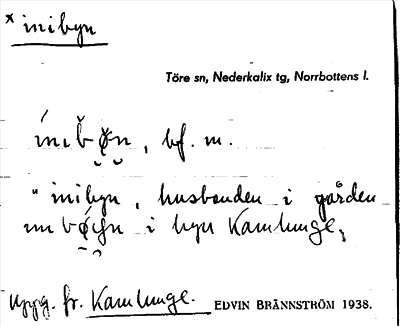 * inibyn
Töre sn, Nederkalix tg, Norrbottens l.
bf. m.
"inibyn, husbonden i gården
i byn Kamlunge,
Uppg. fr. Kamlunge. EDVIN BRÄNNSTRÖM 1938.